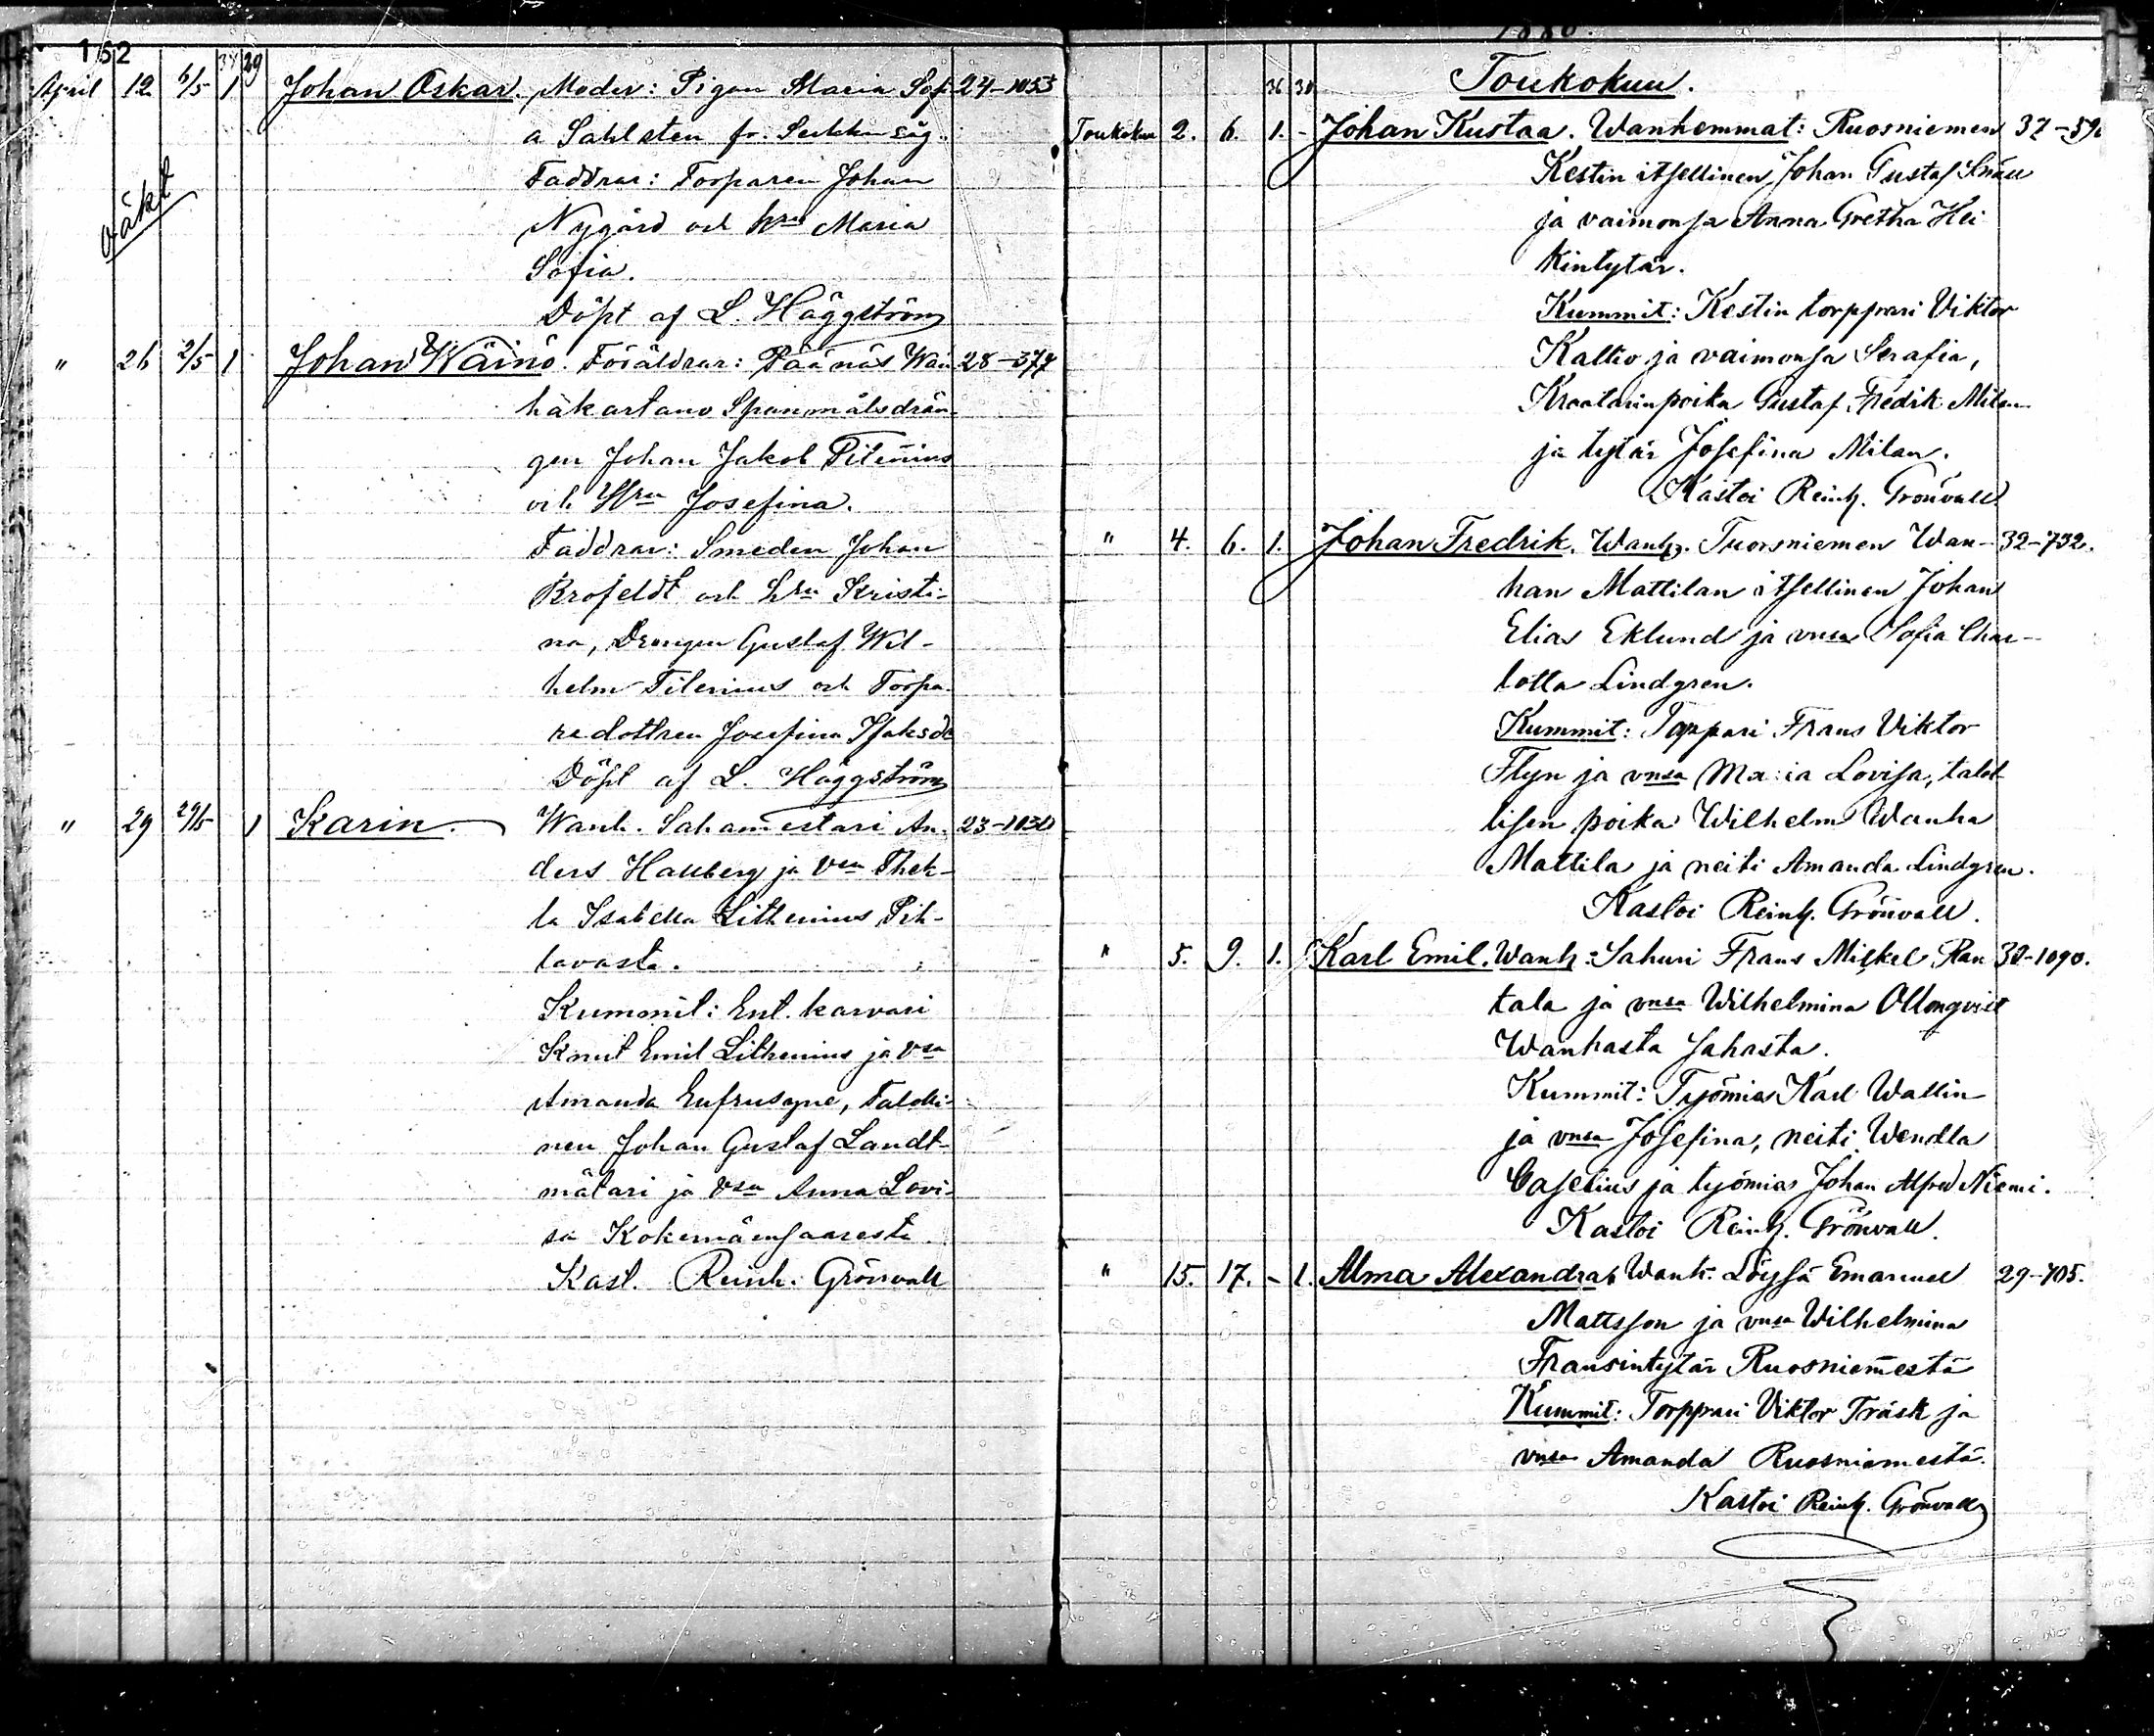 152
34 29
April 12 6/5 1 Johan Oskar. Moder: Pigan Maria Sofi 24-1053
a Sahlsten fr. såg.
oäkt
Faddrar: Torparen Johan
Nygård och hru Maria
Sofia.
Döpt af L. Häggström
" 26 2/5 1 Johan Wäinö. Föräldrar: Päänäs Wan 28-377
häkartano Spanmålsdrän
gen Johan Jakob Tilenius
och Hru Josefina.
Faddrar: Smeden Johan
Brofeldt och hru Kristi-
na, Drengen Gustaf Wil-
helm Tilenius och Torpa-
redottren Josefina Isaksdr
Döpt af L. Häggström
" 29 29/5 1 Karin. Wanh. Sahamestari An- 23-1030
ders Hallberg ja Vsa Thek-
la Isabella Lithenius Pih-
lavasta.
Kummit: Ent. karvari
Knut Emil Lithenius ja Vsa
Amanda Eufrusyne, Talolli-
nen Johan Gustaf Landt-
mätari ja Vsa Anna Lovi-
sa Kokemäensaaresta
Kast. Reinh. Grönvall
1880.
36 30 Toukokuu.
Toukokuu 2. 6. 1. - Johan Kustaa. Wanhemmat: Ruosniemen 37-59
Kestin itsellinen Johan Gustaf Snäll
ja vaimonsa Anna Gretha Hei
kintytär.
Kummit: Kestin torppari Viktor
Kaltio ja vaimonsa Serafia,
Kraatarinpoika Gustaf Fredik Milan
ja tytär Josefina Milan.
Kastoi Reinh. Grönvall
" 4. 6. 1. Johan Fredrik. Wanh. Tuorsniemen Wan- 32-732.
han Mattilan itsellinen Johan
Elias Eklund ja vnsa Sofia Char-
lotta Lindgren.
Kummit: Torppari Frans Viktor
Flyn ja vnsa Maria Lovisa, talol-
lisen poika Wilhelm Wanha
Mattila ja neiti Amanda Lindgren.
Kastoi Reinh. Grönvall.
" 5. 9. 1. Karl Emil. Wanh: Sahuri Frans Mickel Ran 32-1090.
tala ja vnsa Wilhelmina Ollonqvist
Wanhasta Sahasta.
Kummit: Työmies Karl Wallin
ja vnsa Josefina, neiti Wendla
Caselius ja työmies Johan Alfred Niemi.
Kastoi Reinh. Grönvall.
" 15. 17. - 1. Alma Alexandra. Wanh. Löysä Emanuel 29-705.
Mattsson ja vnsa Wilhelmina
Fransintytär Ruosniemestä
Kummit: Torppari Viktor Träsk ja
vnsa Amanda Ruosniemestä.
Kastoi Reinh. Grönvall